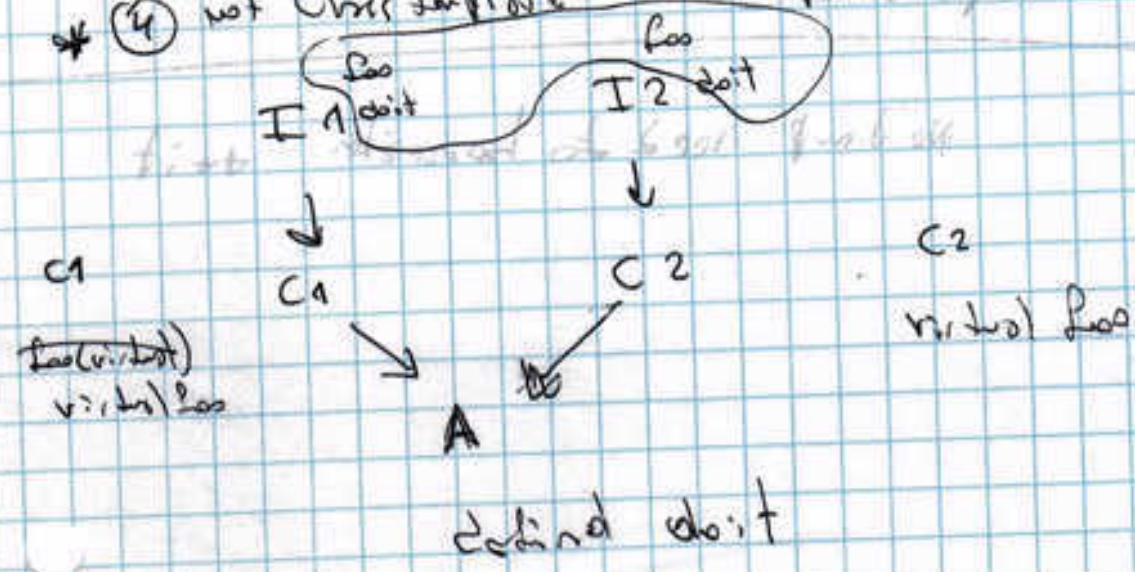 * ④ not
foo foo
I1 doit I2 doit
C1 C1 C2 C2
foo(virtual) virtual foo
virtual foo
A
defind doit